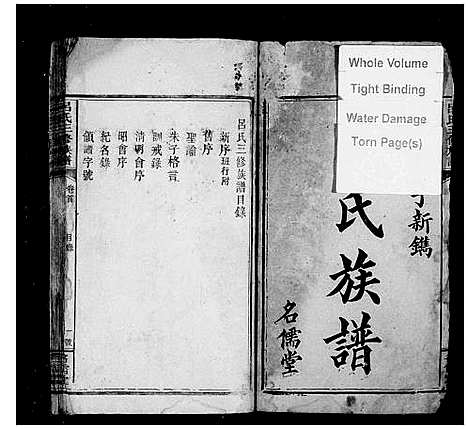 Whole Volume
Tight Binding
Water Damage
Torn Page(s)
新鐫
氏族譜
名儒堂
呂氏三修族譜目錄
新序 班行附
舊序
聖諭
朱子格言
訓戒錄
清明會序
昭會序
紀名錄
領譜字號
呂氏三修族譜
卷首
目錄